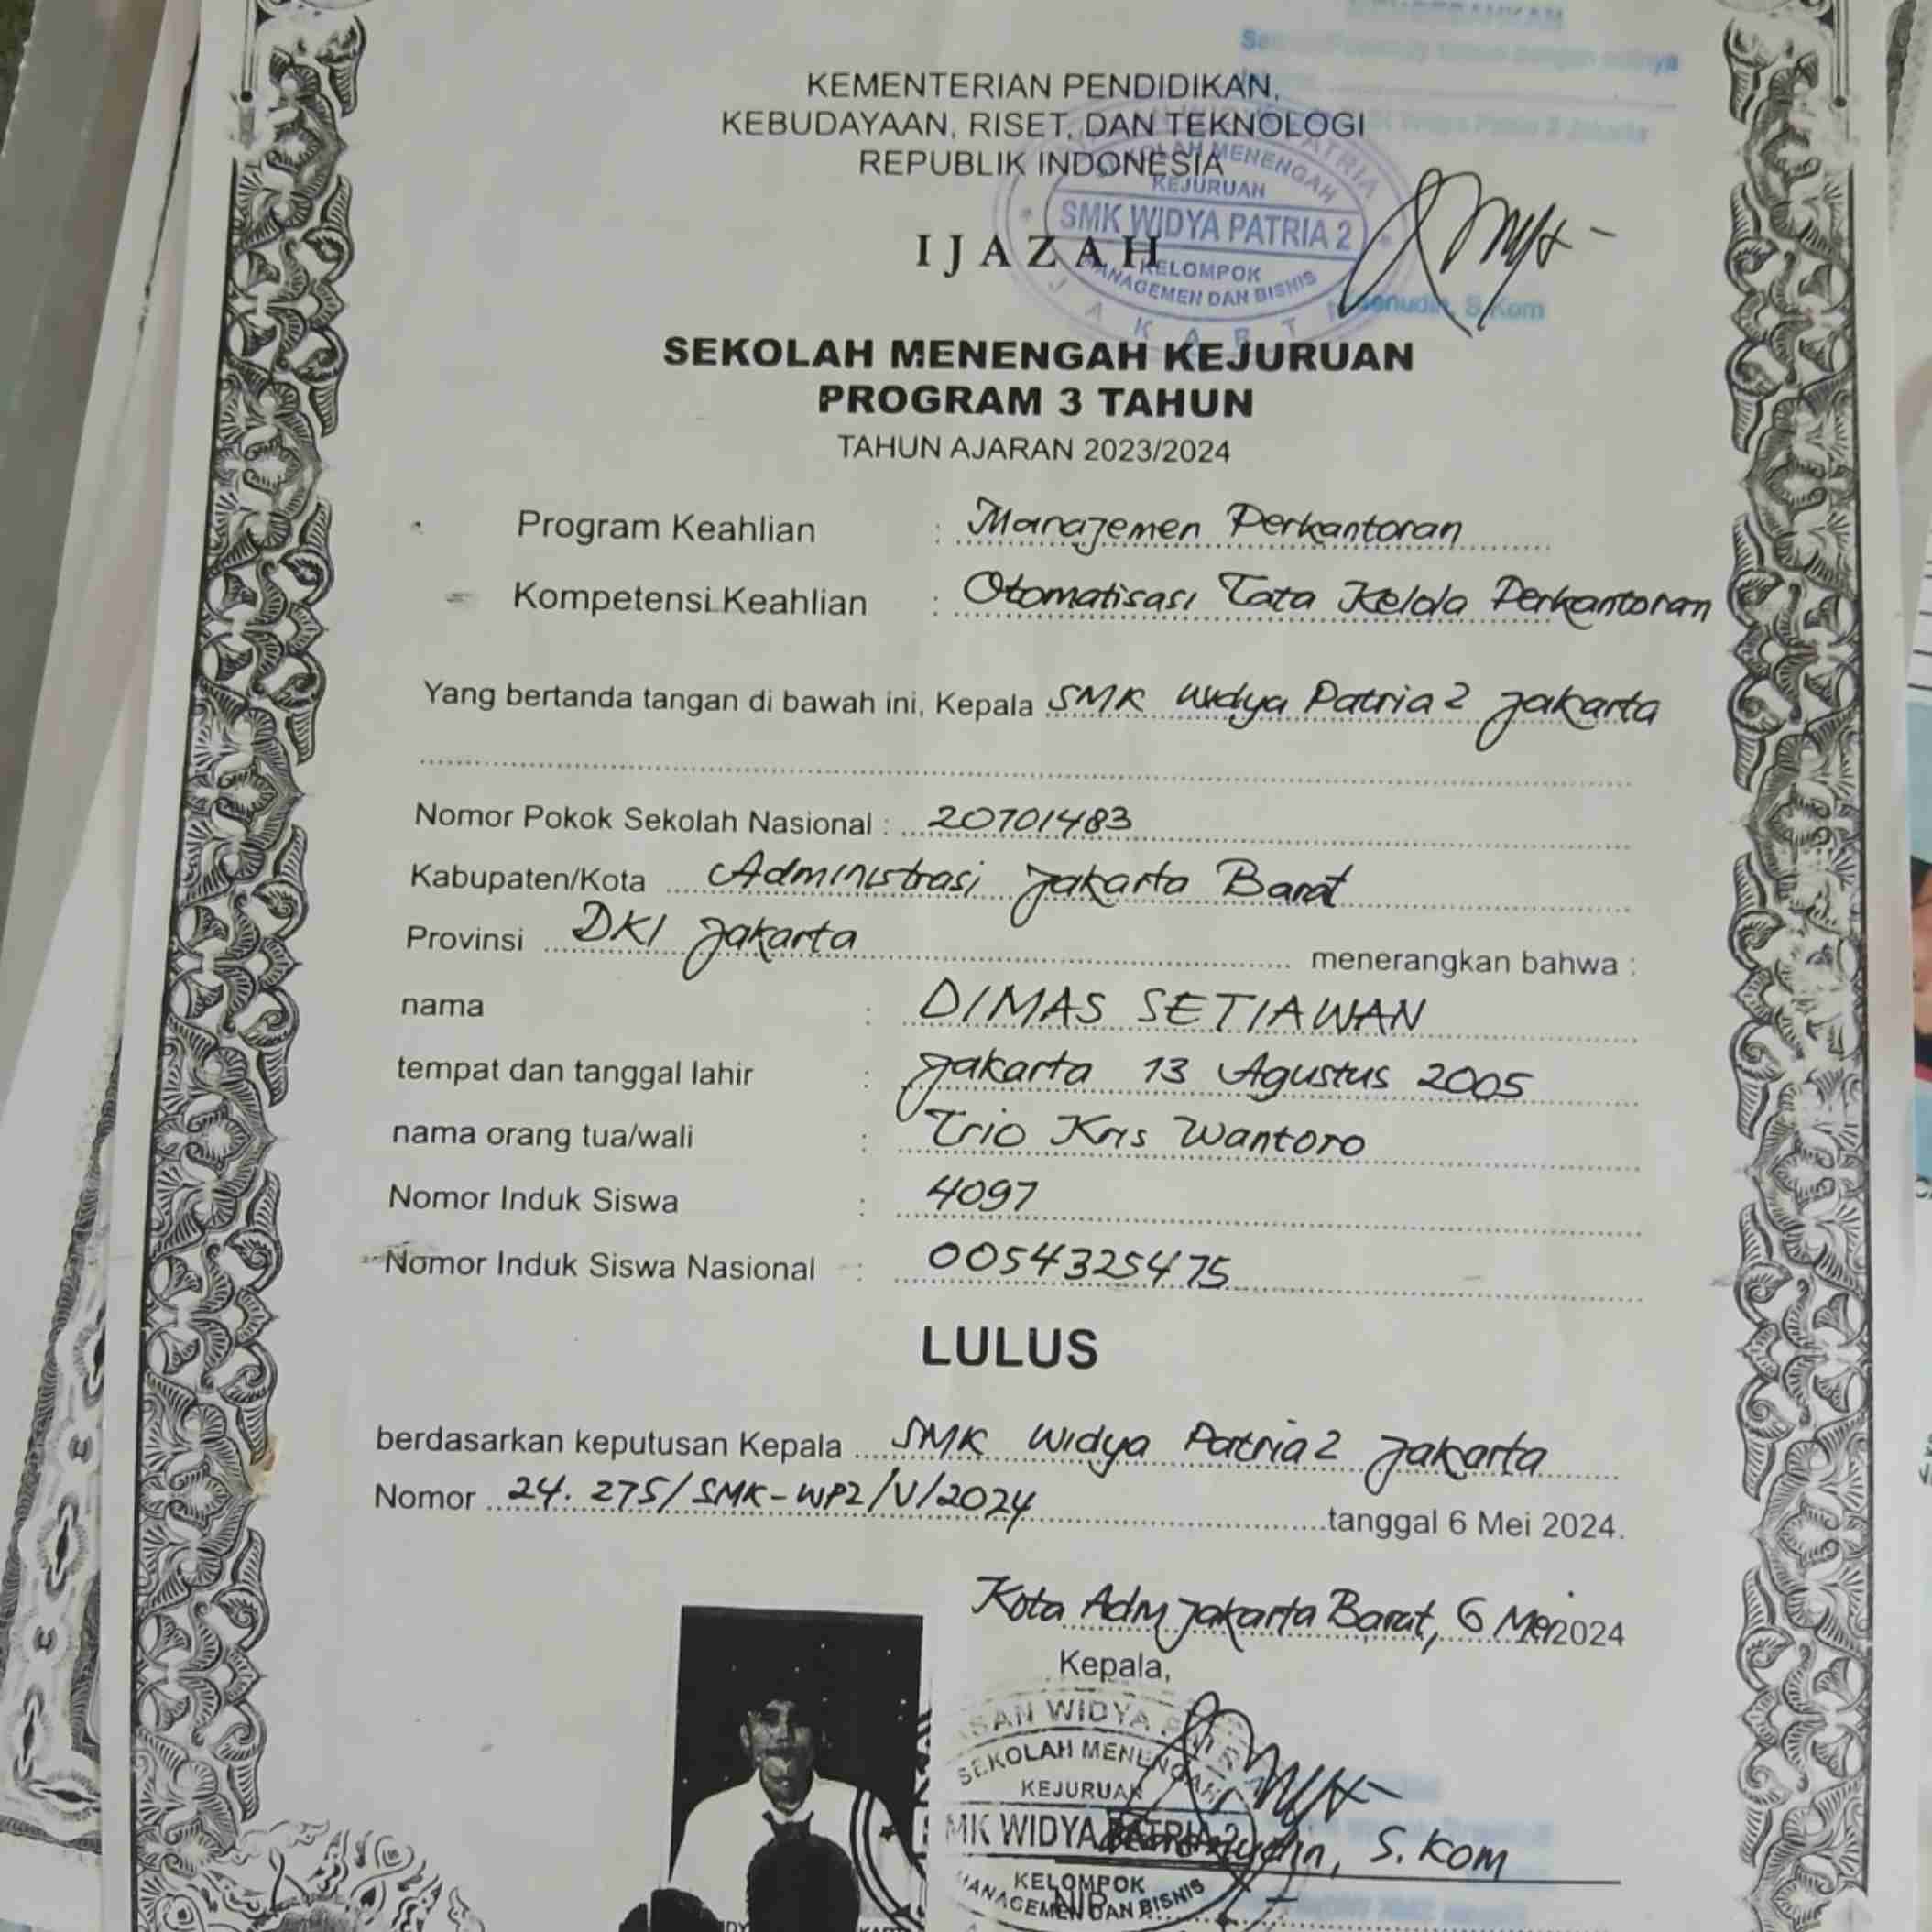 KEMENTERIAN PENDIDIKAN,
KEBUDAYAAN, RISET, DAN TEKNOLOGI
REPUBLIK INDONESIA
SEKOLAH MENENGAH
KEJURUAN
SMK WIDYA PATRIA 2
KELOMPOK
MANAGEMEN DAN BISNIS
JAKART
IJAZAH
S.Kom
SEKOLAH MENENGAH KEJURUAN
PROGRAM 3 TAHUN
TAHUN AJARAN 2023/2024
Program Keahlian : Manajemen Perkantoran
Kompetensi Keahlian : Otomatisasi Tata Kelola Perkantoran
Yang bertanda tangan di bawah ini, Kepala SMK Widya Patria 2 Jakarta
Nomor Pokok Sekolah Nasional : 20701483
Kabupaten/Kota Administrasi Jakarta Barat
Provinsi DKI Jakarta menerangkan bahwa :
nama : DIMAS SETIAWAN
tempat dan tanggal lahir : Jakarta 13 Agustus 2005
nama orang tua/wali : Trio Kris Wantoro
Nomor Induk Siswa : 4097
Nomor Induk Siswa Nasional : 0054325475
LULUS
berdasarkan keputusan Kepala SMK Widya Patria 2 Jakarta
Nomor 24. 275/SMK-WP2/V/2024 tanggal 6 Mei 2024.
Kota Adm Jakarta Barat, 6 Mei 2024
Kepala,
SAN WIDYA
SEKOLAH MENENGAH
KEJURUAN
MK WIDYA PATRIA 2
S. Kom
KELOMPOK
MANAGEMEN DAN BISNIS
NIP